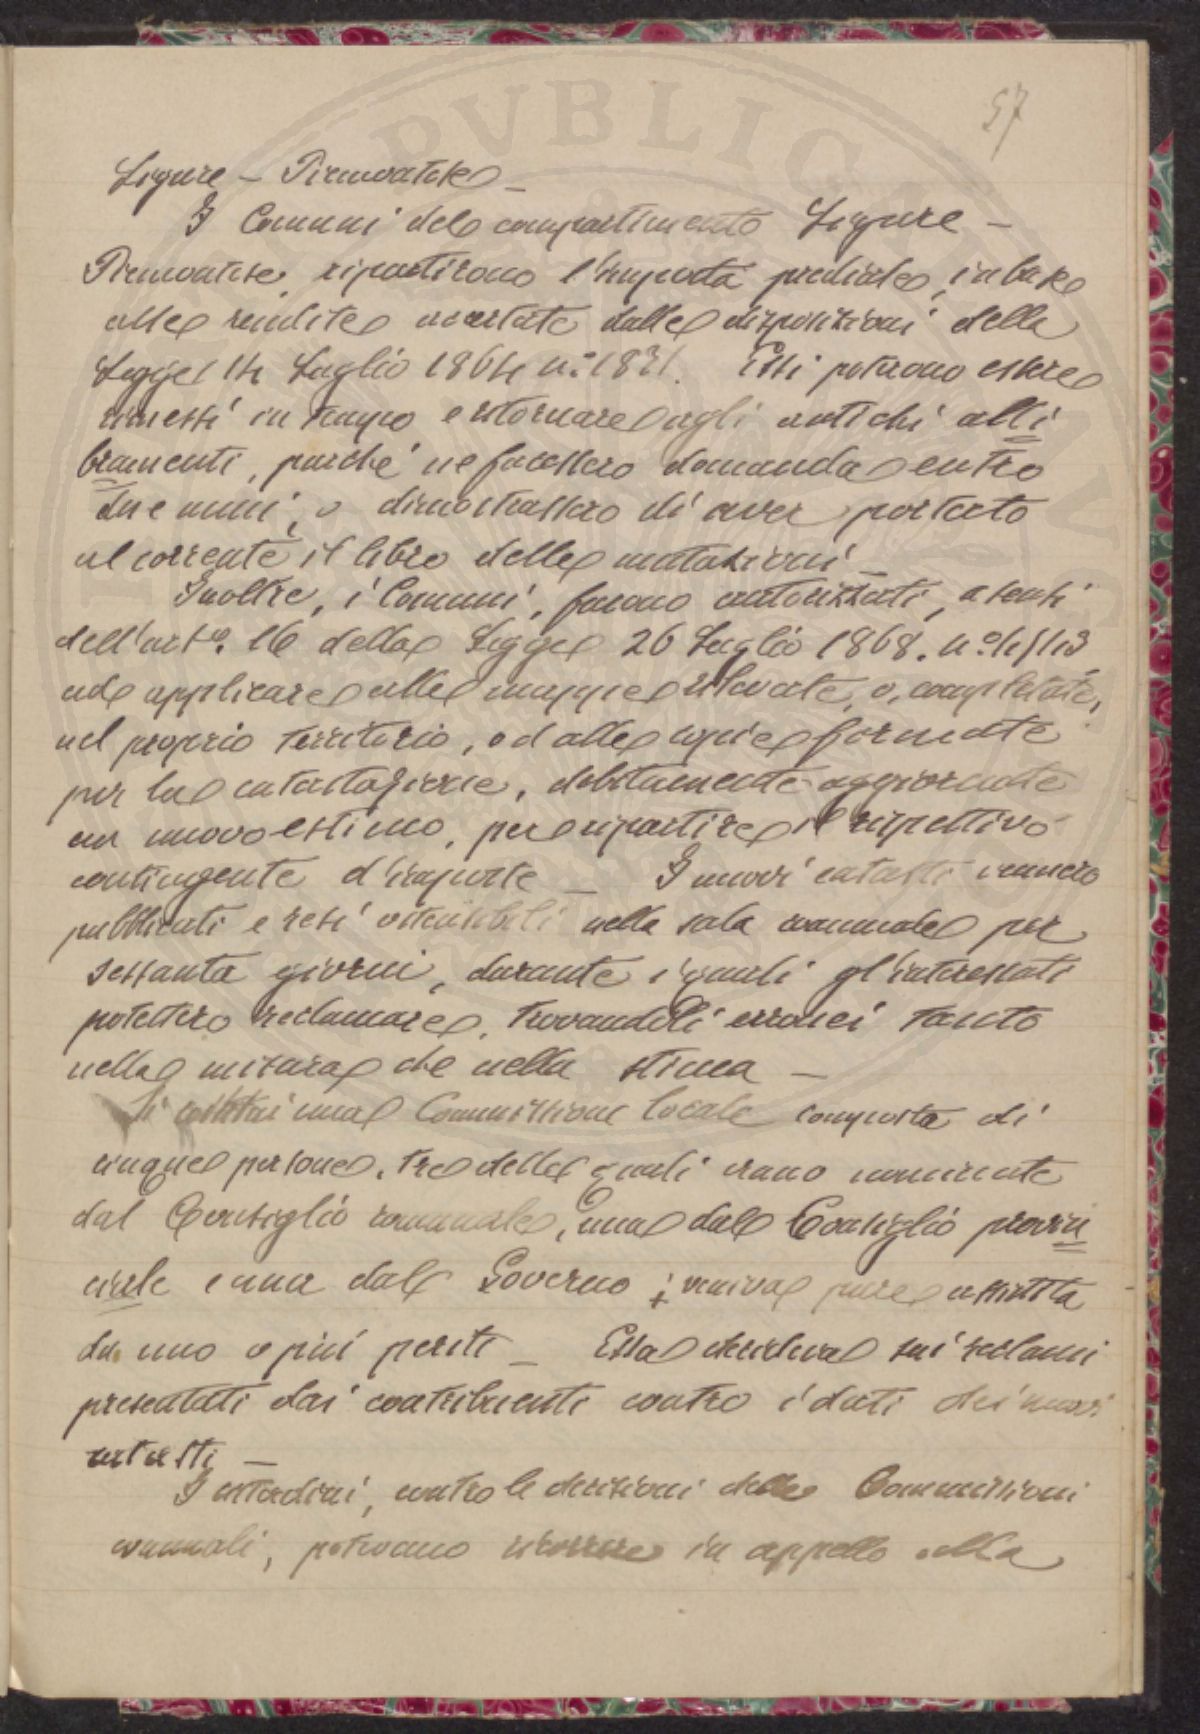 57
Ligure – Piemontese –
I Comuni del compartimento Ligure –
Piemontese, ripartirono l'imposta prediale, in base
alle rendite accertate dalle disposizioni della
Legge 14 Luglio 1864 n.° 1831. Essi potevano essere
rimessi in tempo e ritornare agli antichi alli
bramenti, purché ne facessero domanda entro
due anni, o dimostrassero di aver portato
al corrente il libro delle mutazioni –
Inoltre, i Comuni, furono autorizzati, a sensi
dell'art.° 16 della Legge 26 Luglio 1868. n.° 4513
ad applicare alle mappe rilevate, o, completate,
nel proprio territorio, od alle copie formate
per la catastazione, debitamente aggiornate
un nuovo estimo, per ripartire il rispettivo
contingente d'imposte – I nuovi catasti vennero
pubblicati e resi ostensibili nella sala comunale per
sessanta giorni, durante i quali gl'interessati
potettero reclamare, trovandoli erronei tanto
nella misura che nella stima –
Si costituì una Commissione locale composta di
cinque persone, tre delle quali erano nominate
dal Consiglio comunale, una dal Consiglio provin
ciale e una dal Governo; veniva pure assistita
da uno o più periti – Essa decideva sui reclami
presentati dai contribuenti contro i dati dei nuovi
catasti –
I cittadini, contro le decisioni delle Commissioni
comunali, potevano ricorrere in appello alla
PVBLIC